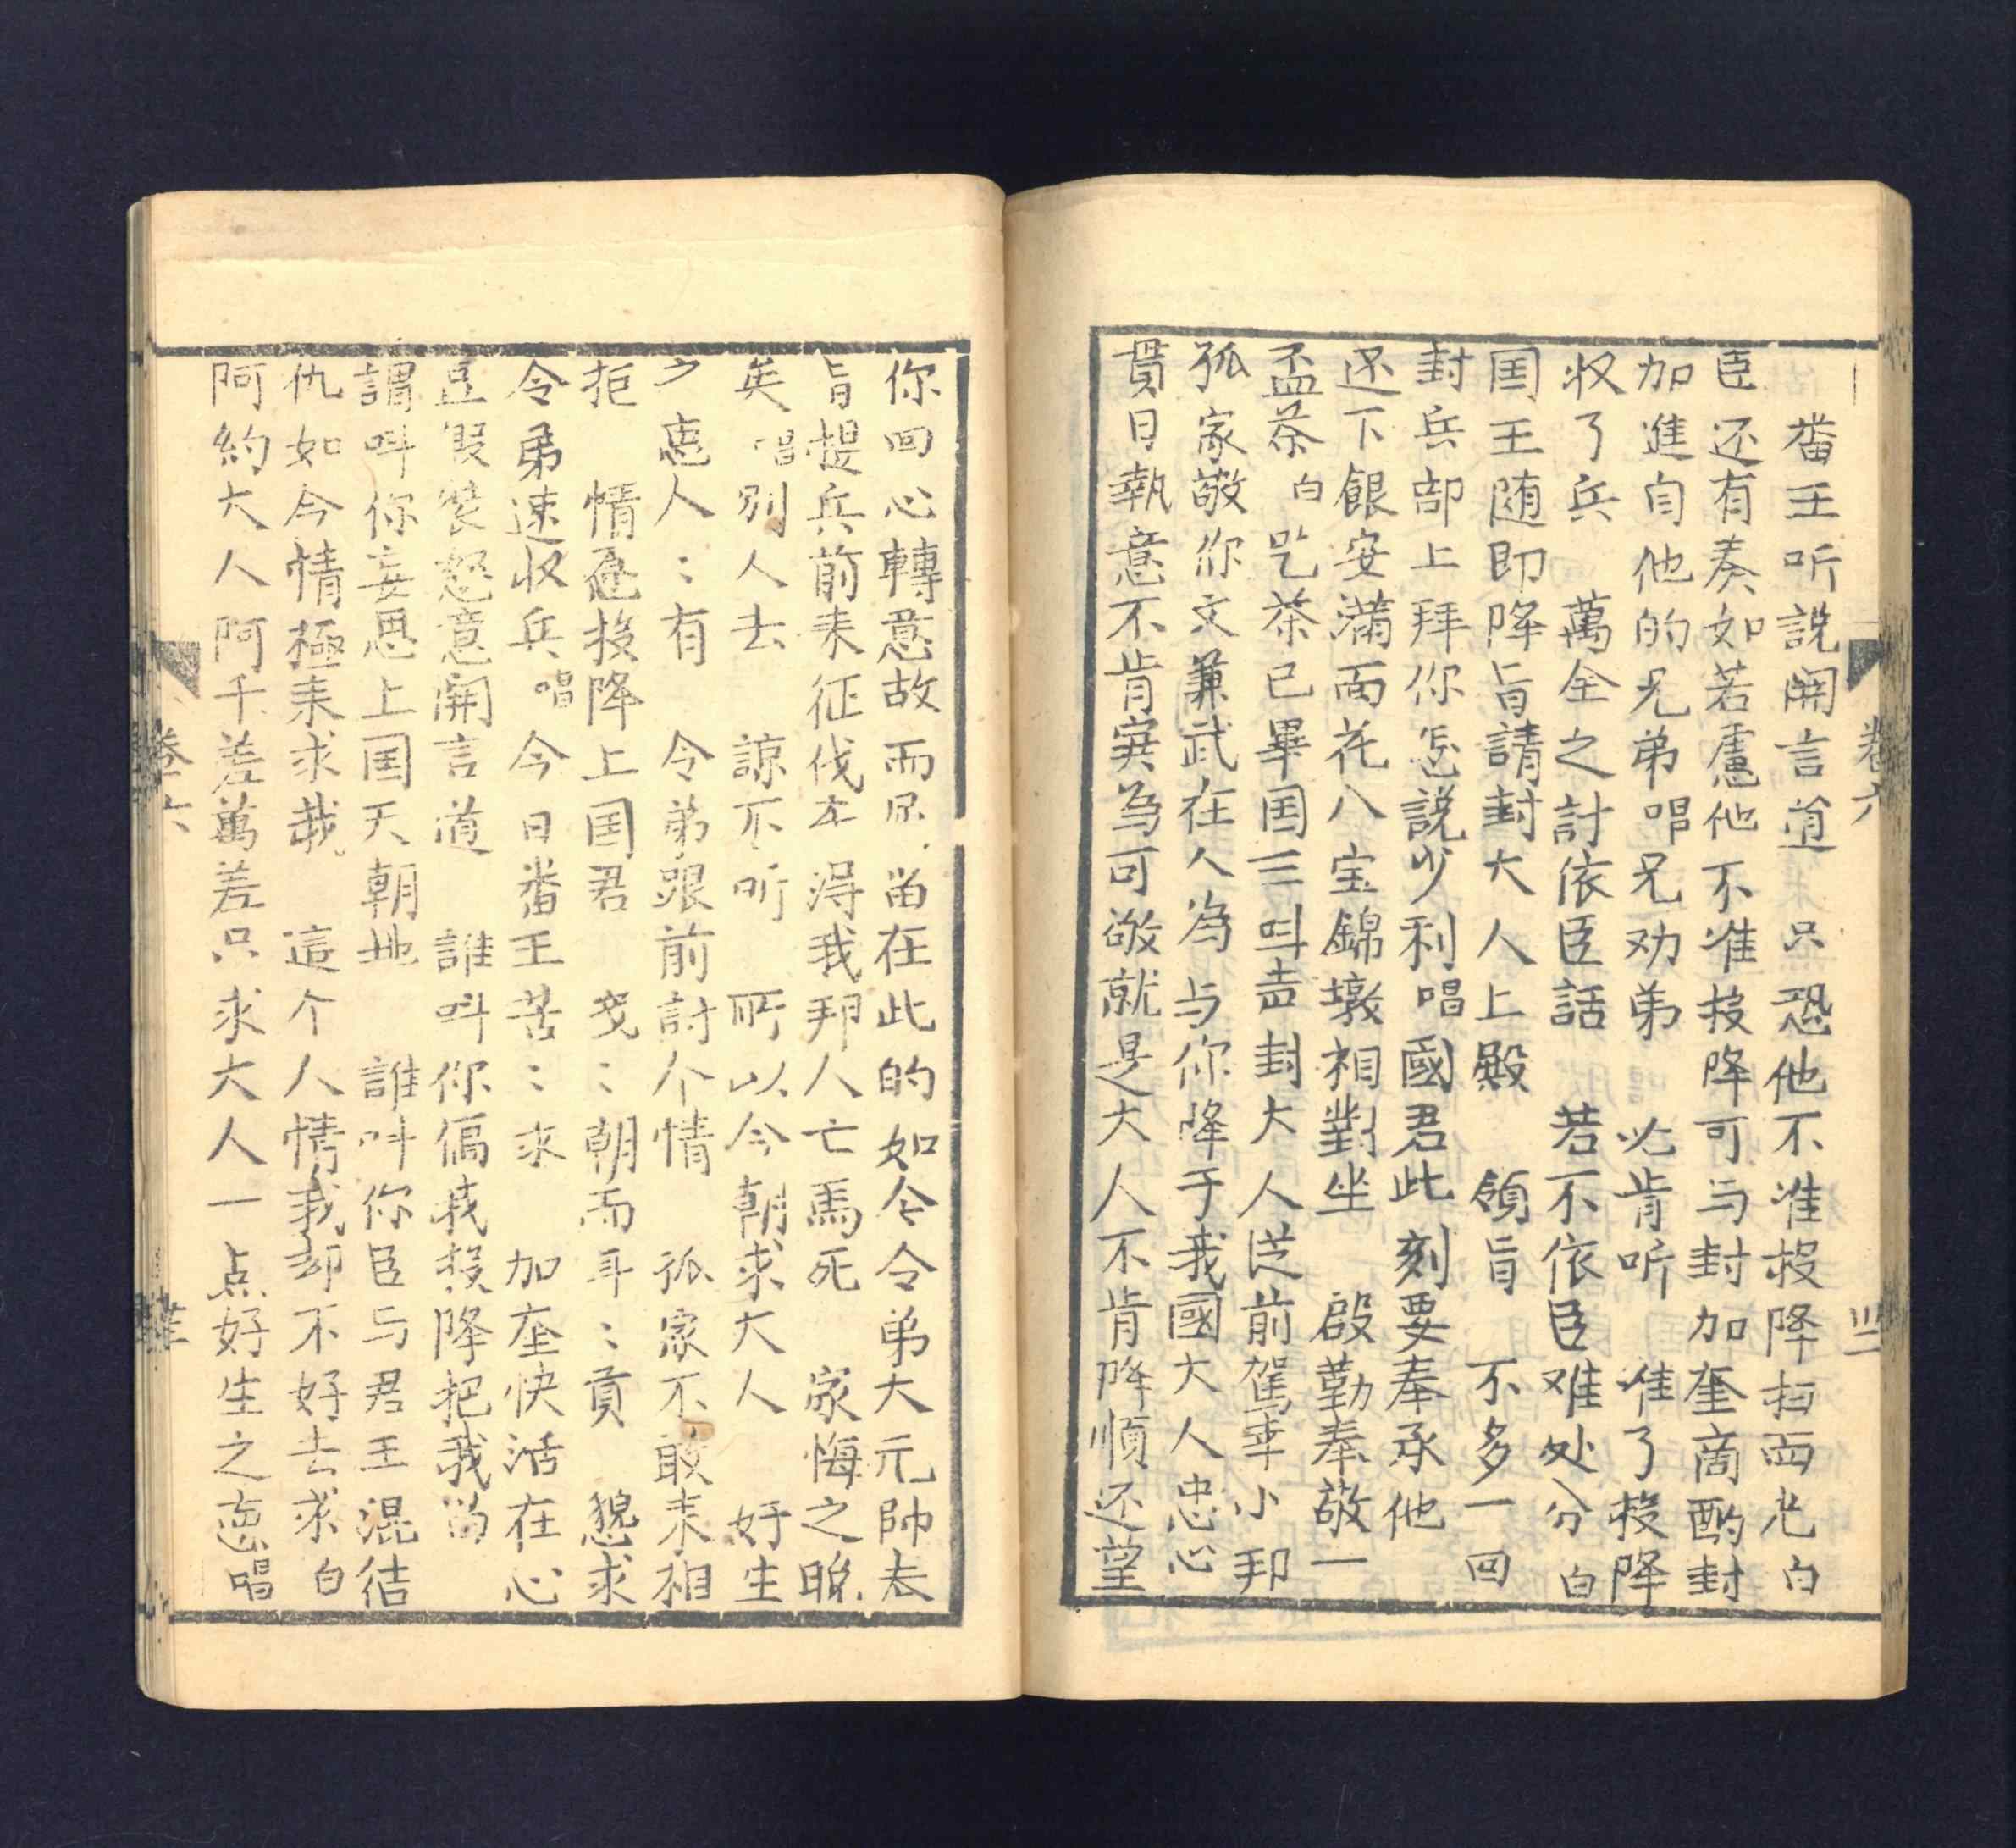 卷六
番王听説開言道 只恐他不准投降扫面光白
臣还有奏如若慮他不准投降可与封加奎商酌封
加進自他的兄弟唱兄劝弟 必肯听 准了投降
收了兵 萬全之計依臣話 若不依臣难处分白
国王随即降旨請封大人上殿 領旨 不多一回
封兵部上拜你怎説少利唱國君此刻要奉承他
还下銀安滿面花八宝錦墩相對坐 殷勤奉敬一
盃茶白吃茶已畢国王叫声封大人従前駕幸小邦
孤家敬你文兼武在人為与你降于我國大人忠心
貫日執意不肯寔為可敬就是大人不肯降順还望
你回心轉意故而尽留在此的如今令弟大元帥奉
旨提兵前来征伐本得我邦人亡馬死 家悔之晚
矣唱别人去 諒不听 所以今朝求大人 好生
之悳人:有 令弟跟前討个情 孤家不敢来相
拒 情愿投降上国君 歹:朝而年:貢 懇求
令弟速收兵唱今日番王苦:求 加奎快活在心
豆假裝怒意開言道 誰叫你偪我投降把我留
謂叫你妄思上国天朝地 誰叫你臣与君王混结
仇如今情極来求我 這个人情我却不好去求白
阿約大人阿千差萬差只求大人一点好生之悳唱
卷六